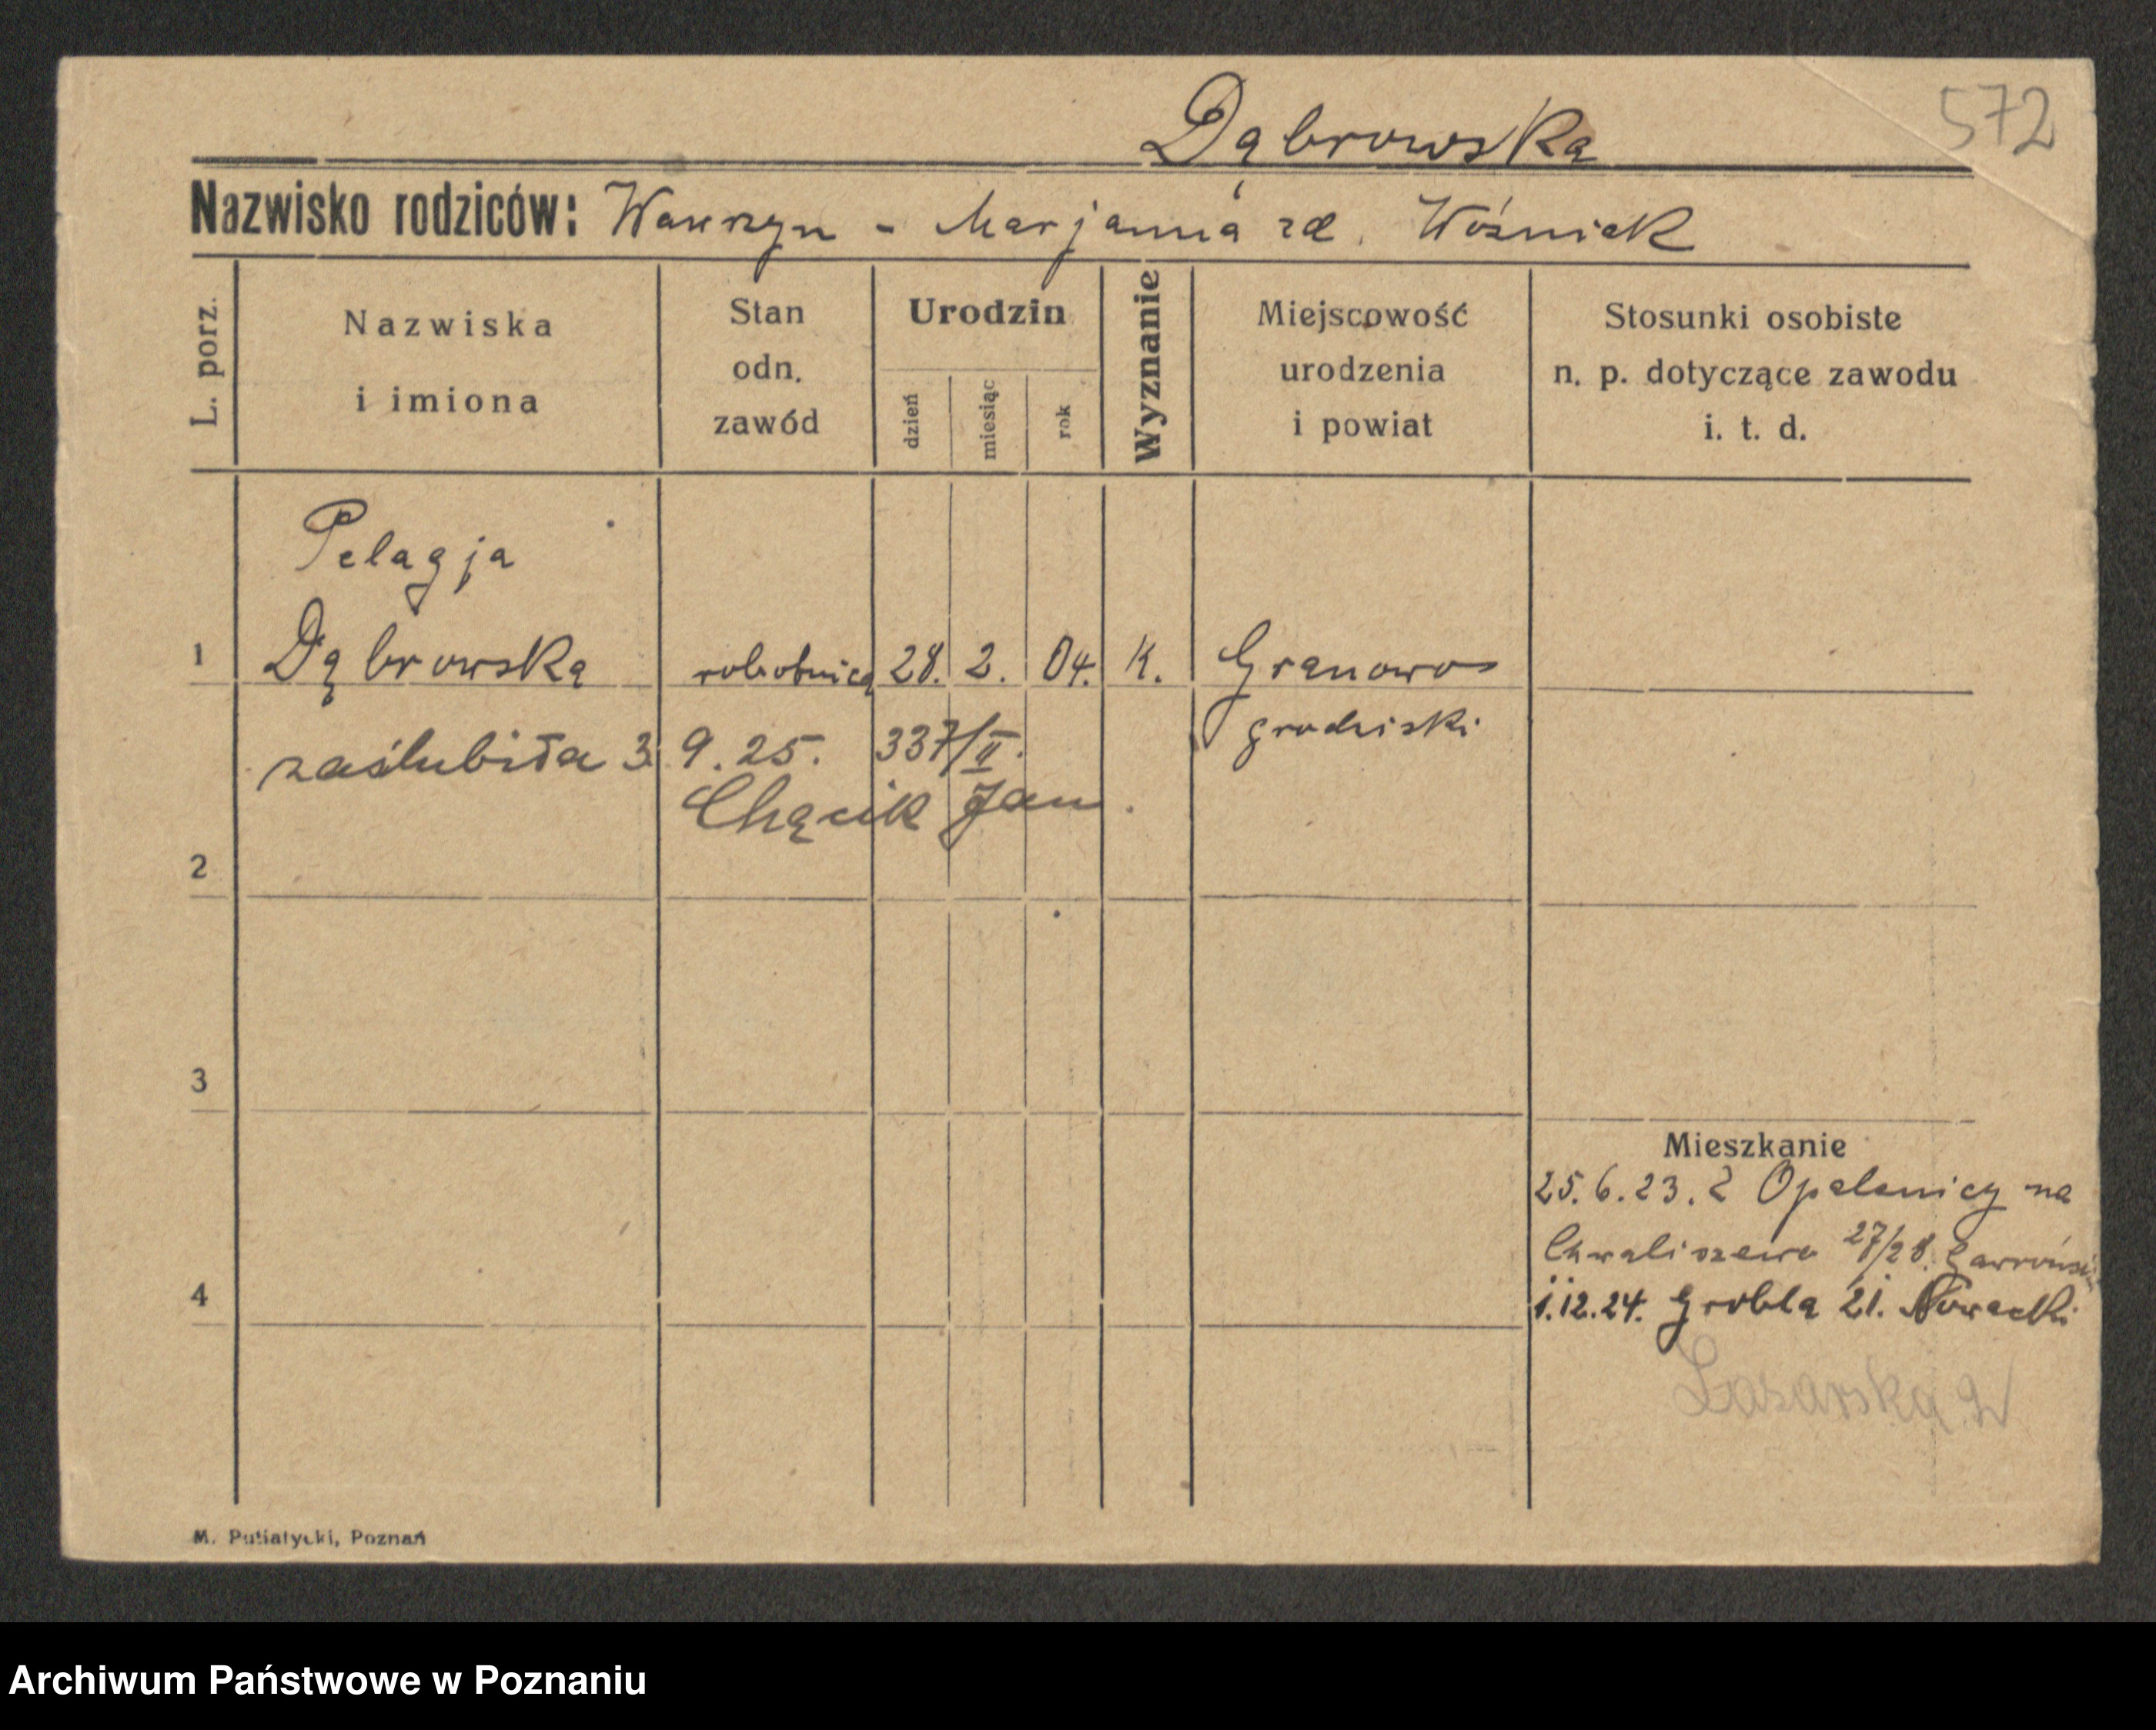 572
Dąbrowska
Nazwisko rodziców: Wawrzyn - Marjanna zd. Woźniak
L. porz.
Nazwiska
i imiona
Stan
odn.
zawód
Urodzin
dzień
miesiąc
rok
Wyznanie
Miejscowość
urodzenia
i powiat
Stosunki osobiste
n. p. dotyczące zawodu
i. t. d.
Pelagja
1 Dąbrowska robotnica 28. 2. 04. K. Granowo
grodziski
zaślubiła 3. 9. 25. 337/II.
Chącik Jan.
2
3
Mieszkanie
25.6.23. Z Opalenicy na
Chwaliszewo 27/28.
4
1.12.24. Grobla 21. Nowacki
Łazarska
M. Putiatycki, Poznań
Archiwum Państwowe w Poznaniu